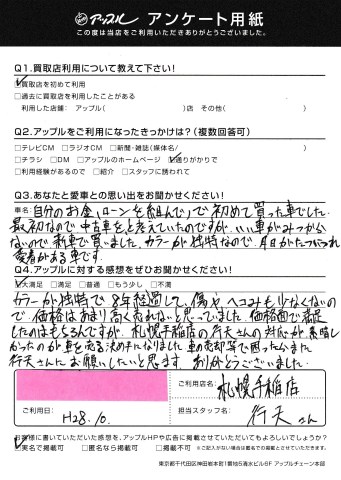 アップル アンケート用紙
この度は当店をご利用いただきありがとうございました。
Q1.買取店利用について教えて下さい!
☑買取店を初めて利用
□過去に買取店を利用したことがある
利用した店舗: アップル( )店 その他( )
Q2.アップルをご利用になったきっかけは?(複数回答可)
□テレビCM □ラジオCM □新聞・雑誌(媒体名/ )
□チラシ □DM □アップルのホームページ ☑通りがかりで
□利用経験があるので □紹介 □スタッフに誘われて
Q3.あなたと愛車との思い出をお聞かせください!
車名: 自分のお金(ローンを組んで)で初めて買った車でした。
最初なので中古車を、と考えていたのですが、いい車がみつから
ないので新車で買いました。カラーが独特なので、
愛着がある車です。
Q4.アップルに対する感想をぜひお聞かせください!
☑大満足 □満足 □普通 □もう少し □不満
カラーが独特で8年経過して、傷や、ヘコみも少なくないの
で、価格はあまり高く売れないと思っていました。価格面で満足
したのはもちろんですが、札幌手稲店の行天さんの対応が素晴し
かったのが車を売る決め手になりました。車の売却等で困ったらまた
行天さんにお願いしたいと思います。ありがとうございました。
ご利用店名: 札幌手稲店
ご利用日: H28.10. 担当スタッフ名: 行天さん
お客様に書いていただいた感想を、アップルHPや広告に掲載させていただいてもよろしいでしょうか?
☑実名で掲載可 □匿名なら掲載可 □掲載不可 ※匿名の場合はご利用日・地域・車名のみの記載とさせていただきます。
東京都千代田区神田坂本町1番地5清水ビル6F アップルチェーン本部